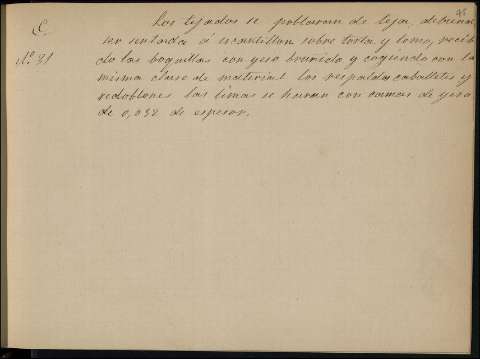 95
C. Los tejados se poblaran de teja, debiendo
Nº 31 ser sentada á escantillon sobre torta y lomo, recibi
do las boquillas con yeso bruñido y cogiendo con la
misma clase de material los respaldos caballetes y
redoblones las limas se haran con camas de yeso
de 0,032 de espesor.